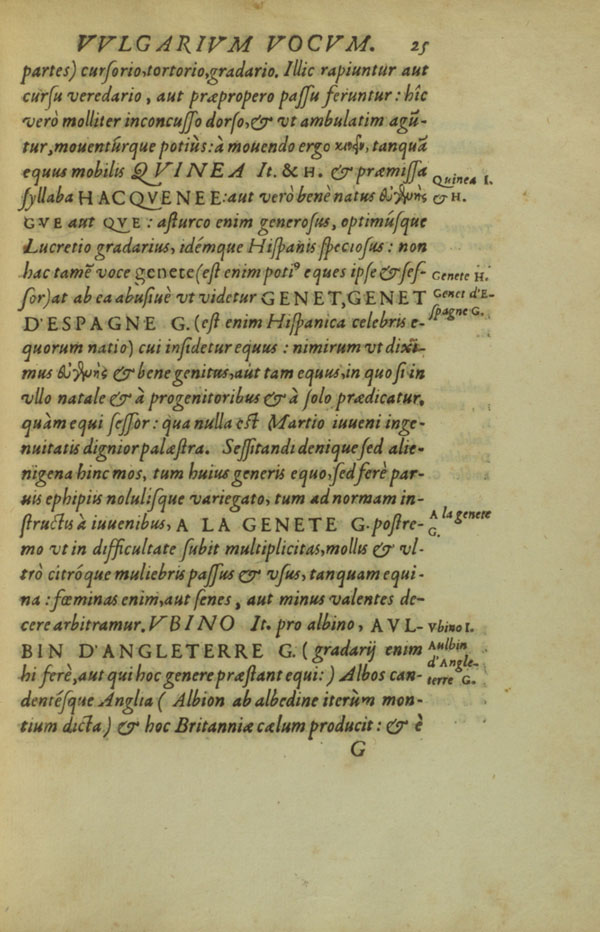 VVLGARIVM VOCVM. 25
partes) curſorio,tortorio,gradario. Illic rapiuntur aut
curſu veredario, aut præpropero paſſu feruntur: hîc
verò molliter inconcuſſo dorſo,& vt ambulatim agũ-
tur,mouentúrque potiùs: à mouendo ergo tanquã
equus mobilis QVINEA It. & H. & præmiſſa
ſyllaba HACQVENEE: aut verò benè natus
GVE aut QVE: aſturco enim generoſus, optimúſque
Lucretio gradarius, idémque Hiſpanis ſpecioſus: non
hac tamẽ voce genete (eſt enim potiꝰ eques ipſe & ſeſ-
ſor) at ab ea abuſiuè vt videtur GENET, GENET
D'ESPAGNE G. (eſt enim Hiſpanica celebris e-
quorum natio) cui inſidetur equus: nimirum vt dixi-
mus & bene genitus,aut tam equus,in quo ſi in
vllo natale & à progenitoribus & à ſolo prædicatur,
quàm equi ſeſſor: qua nulla eſt Martio iuueni inge-
nuitatis dignior palæſtra. Seſſitandi denique ſed alie-
nigena hinc mos, tum huius generis equo, ſed ferè par-
uis ephipiis nolulíſque variegato, tum ad normam in-
ſtructis à iuuenibus, A LA GENETE G. poſtre-
mo vt in difficultate ſubit multiplicitas, mollis & vl-
trò citróque muliebris paſſus & vſus, tanquam equi-
na: fœminas enim,aut ſenes, aut minus valentes de-
cere arbitramur. VBINO It. pro albino, AVL-
BIN D'ANGLETERRE G. (gradarij enim
hi ferè, aut qui hoc genere præſtant equi:) Albos can-
dentéſque Anglia (Albion ab albedine iterùm mon-
tium dicta) & hoc Britanniæ cælum producit: & è
G
Quinea I.
& H.
Genete H.
Genet d'E-
ſpagne G.
A la genete
G.
Vbino I.
Aulbin
d'Angle-
terre G.